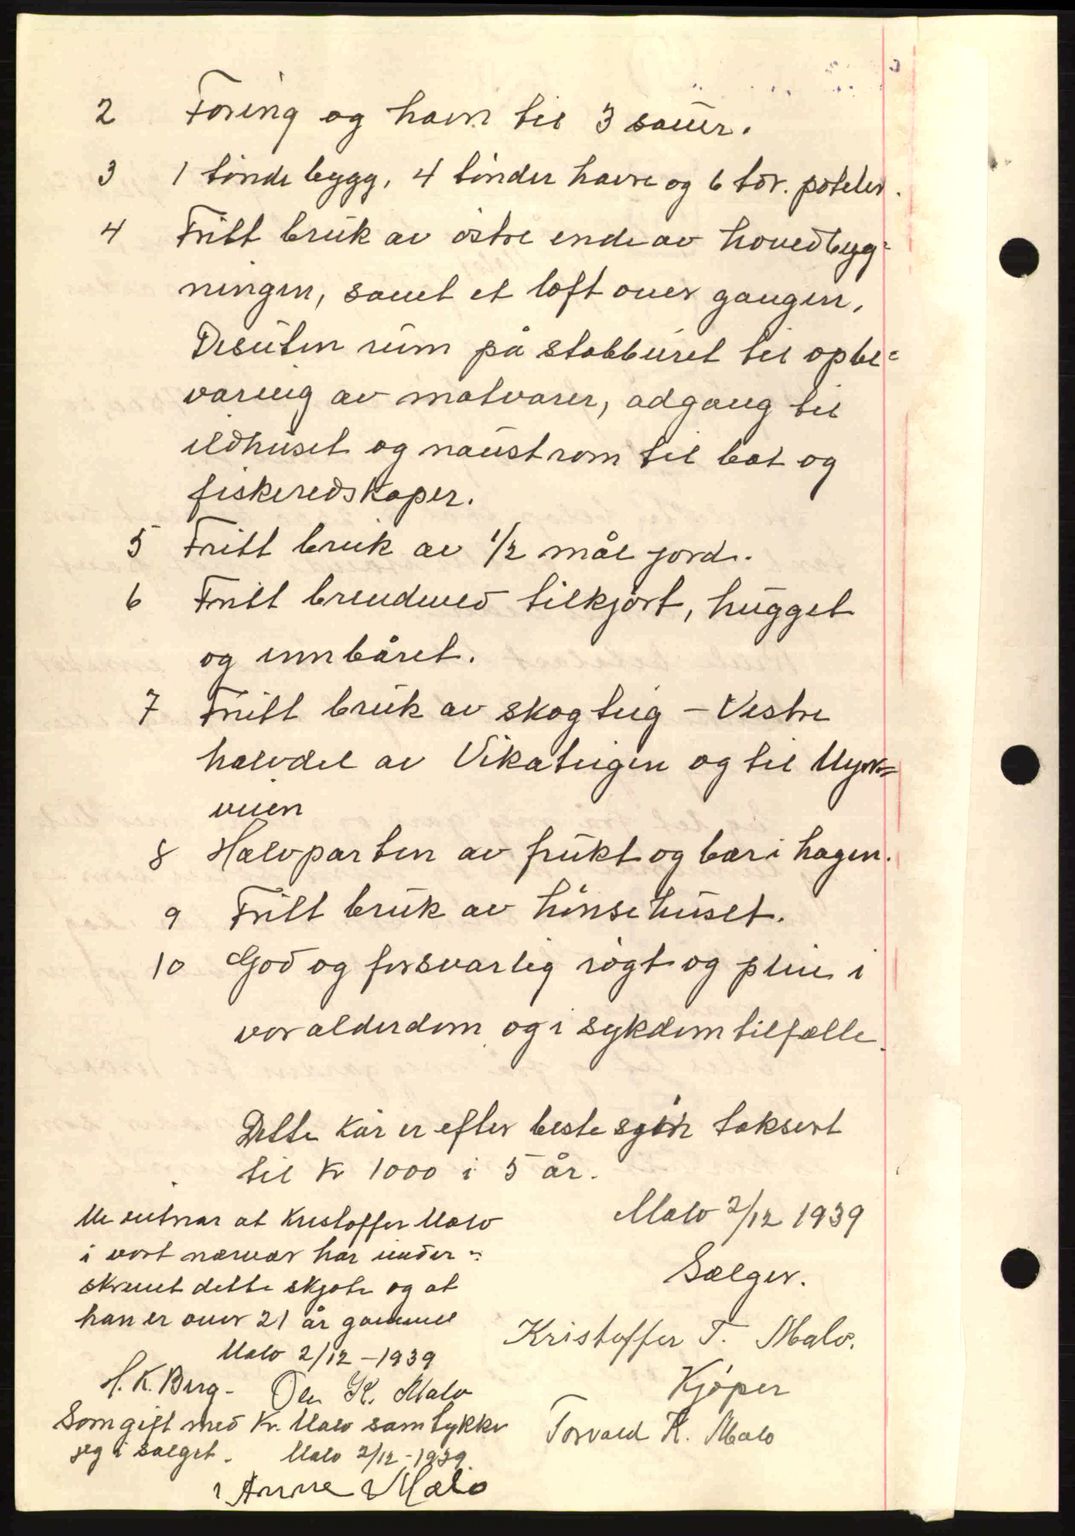 2 Foring og havn til 3 sauer.
3 1 tønde bygg, 4 tønder havre og 6 tdr. poteter.
4 Fritt bruk av østre ende av hovedbyg=
ningen, samt et loft over gangen,
Desuten rum på stabburet til opbe=
varing av matvarer, adgang til
ildhuset og naustrom til båt og
fiskeredskaper.
5 Fritt bruk av 1/2 mål jord.
6 Fritt brendved tilkjørt, hugget
og innbåret.
7 Fritt bruk av skogteig – Vestre
halvdel av Vikateigen og til Myr=
veien
8 Halvparten av frukt og bær i hagen.
9 Fritt bruk av hønsehuset.
10 God og forsvarlig røgt og pleie i
vor alderdom og i sykdomtilfælle.
Dette kår er efter beste skjøn taksert
til Kr 1000 i 5 år.
Malo 2/12 1939
Sælger.
Kristoffer T. Malo.
Kjøper
Torvald K. Malo
Me vitnar at Kristoffer Malo
i vort nærvær har under=
skrevet dette skjøte og at
han er over 21 år gammel
Malo 2/12 – 1939
H. K. Berg – Ole K. Malo
Som gift med Kr. Malo samtykker
jeg i salget. Malo 2/12 – 1939.
Anne Malo